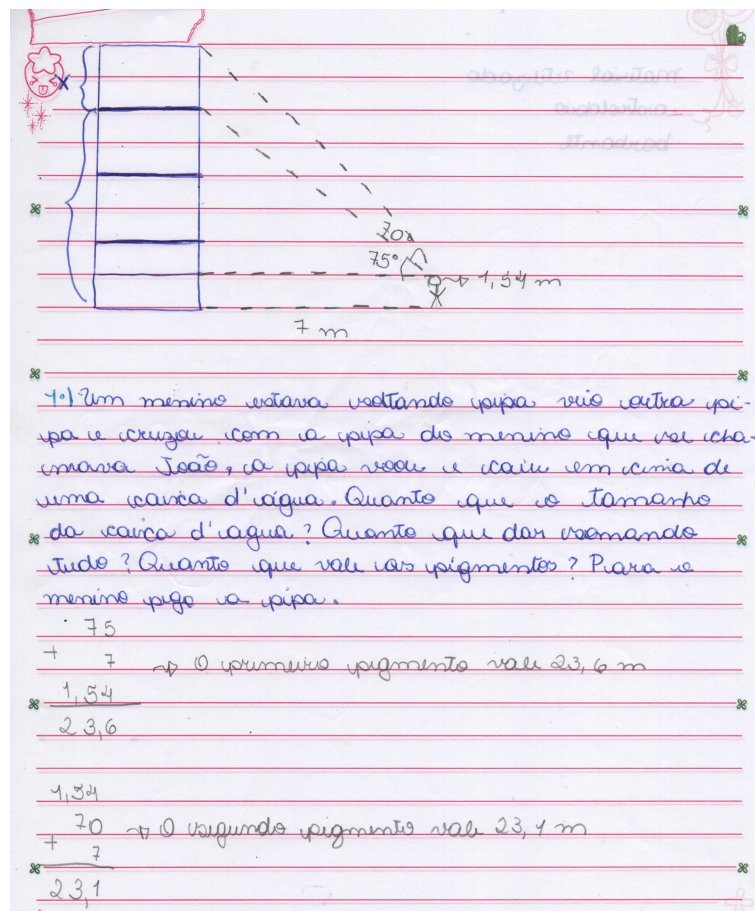 x
70º
75º
1,54 m
7 m
1.) Um menino estava soltando pipa veio outra pi-
pa e cruzou com a pipa do menino que se cha-
mava João, a pipa voou e caiu em cima de
uma caixa d'água. Quanto que é o tamanho
da caixa d'agua? Quanto que dar somando
tudo? Quanto que vale os pigmentos? Para o
menino pego a pipa.
75
+ 7 → O primeiro pigmento vale 23,6 m
1,54
23,6
1,54
70 → O segundo pigmento vale 23,1 m
+ 7
23,1